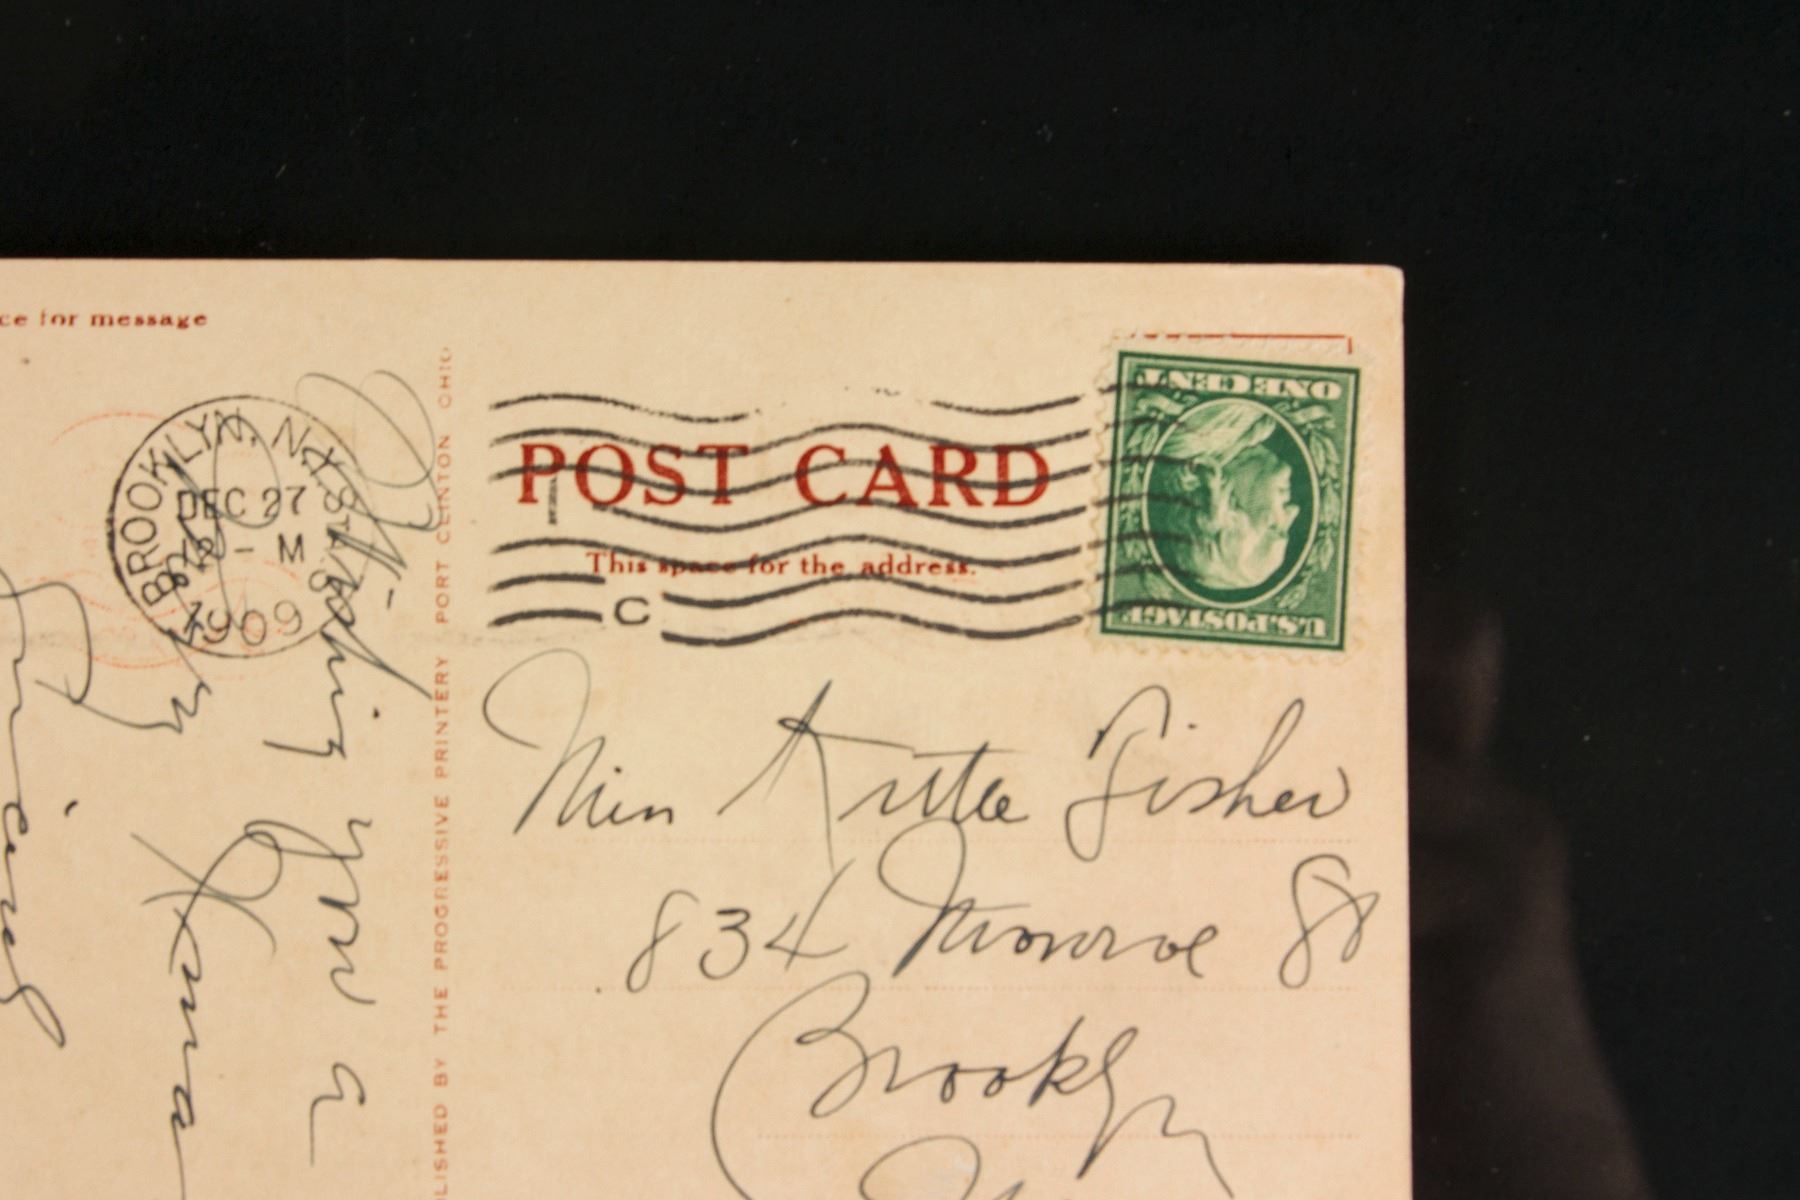 ce for message
BROOKLYN, N.Y. STA.
DEC 27
12 - M
1909
POST CARD
This space for the address.
C
ONE CENT
U.S. POSTAGE
LISHED BY THE PROGRESSIVE PRINTERY, PORT CLINTON OHIO
Wishing you a
Friend
Miss Kittie Fisher
834 Monroe St
Brooklyn